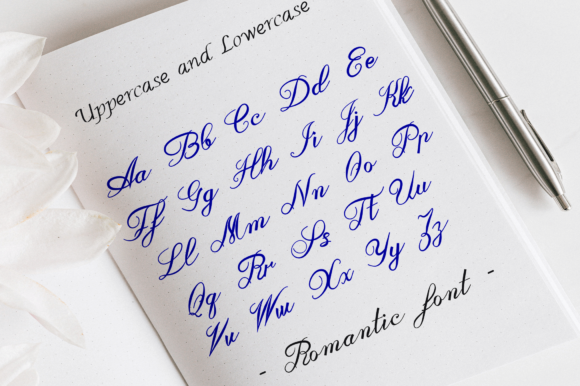 Uppercase and Lowercase
Aa Bb Cc Dd Ee
Ff Gg Hh Ii Jj Kk
Ll Mm Nn Oo Pp
Qq Rr Ss Tt Uu
Vv Ww Xx Yy Zz
- Romantic font -